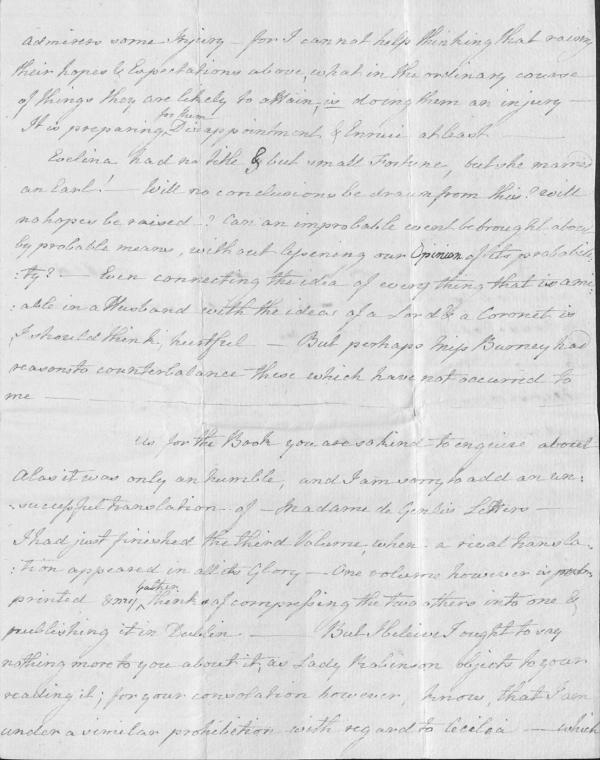 admirers some Injury – for I cannot help thinking that raising
their hopes & Expectations above, what in the ordinary course
of things they are likely to attain, is doing them an injury –
It is preparing for them Disappointment & Ennui at least –
Evelina had no title & but small Fortune, but she married
an Earl! – Will no conclusions be drawn from this? will
no hopes be raised –? Can an improbable event be brought about
by probable means, without lessening our Opinion of its probabili:
:ty? – Even connecting the idea of every thing that is ami:
:able in a Husband with the ideas of a Lord & a Coronet is
I should think, hurtful – But perhaps Miss Burney had
reasons to counterbalance these which have not occurred to
me –
As for the Book you are so kind to enquire about
Alas it was only an humble, and I am sorry to add an un:
:successful translation – of – Madame de Genlis Letters –
I had just finished the third Volume, when a rival transla:
:tion appeared in all its Glory – One volume however is
printed & my father thinks of compressing the two others into one &
publishing it in Dublin. – But I believe I ought to say
nothing more to you about it, as Lady Robinson objects to your
reading it; for your consolation however, know, that I am
under a similar prohibition with regard to Cecilia – which